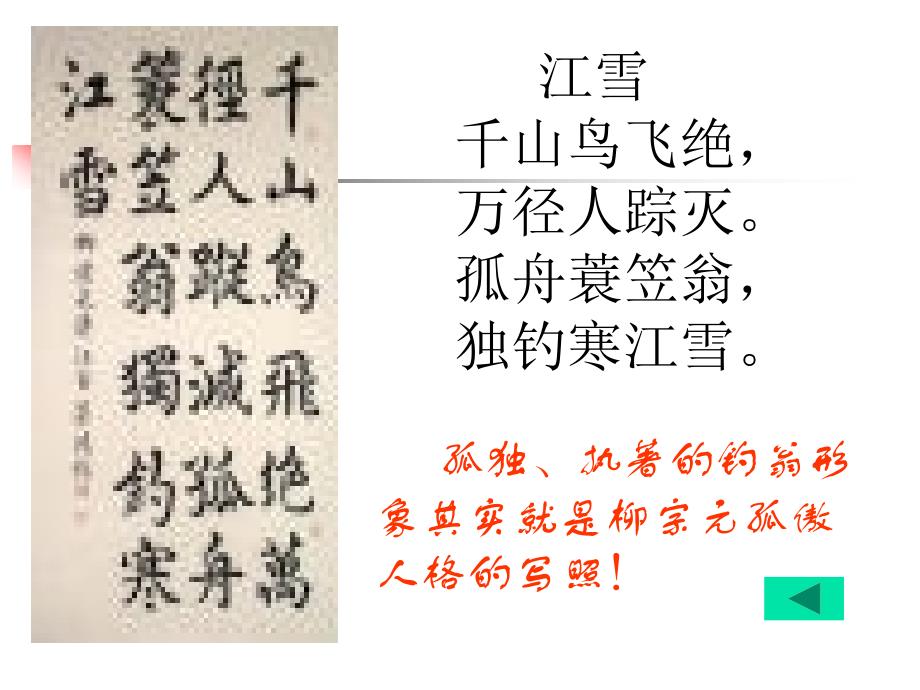 千山鳥飛绝萬
徑人蹤滅孤舟
蓑笠翁獨釣寒
江雪
江雪
千山鸟飞绝，
万径人踪灭。
孤舟蓑笠翁，
独钓寒江雪。
孤独、执著的钓翁形
象其实就是柳宗元孤傲
人格的写照！